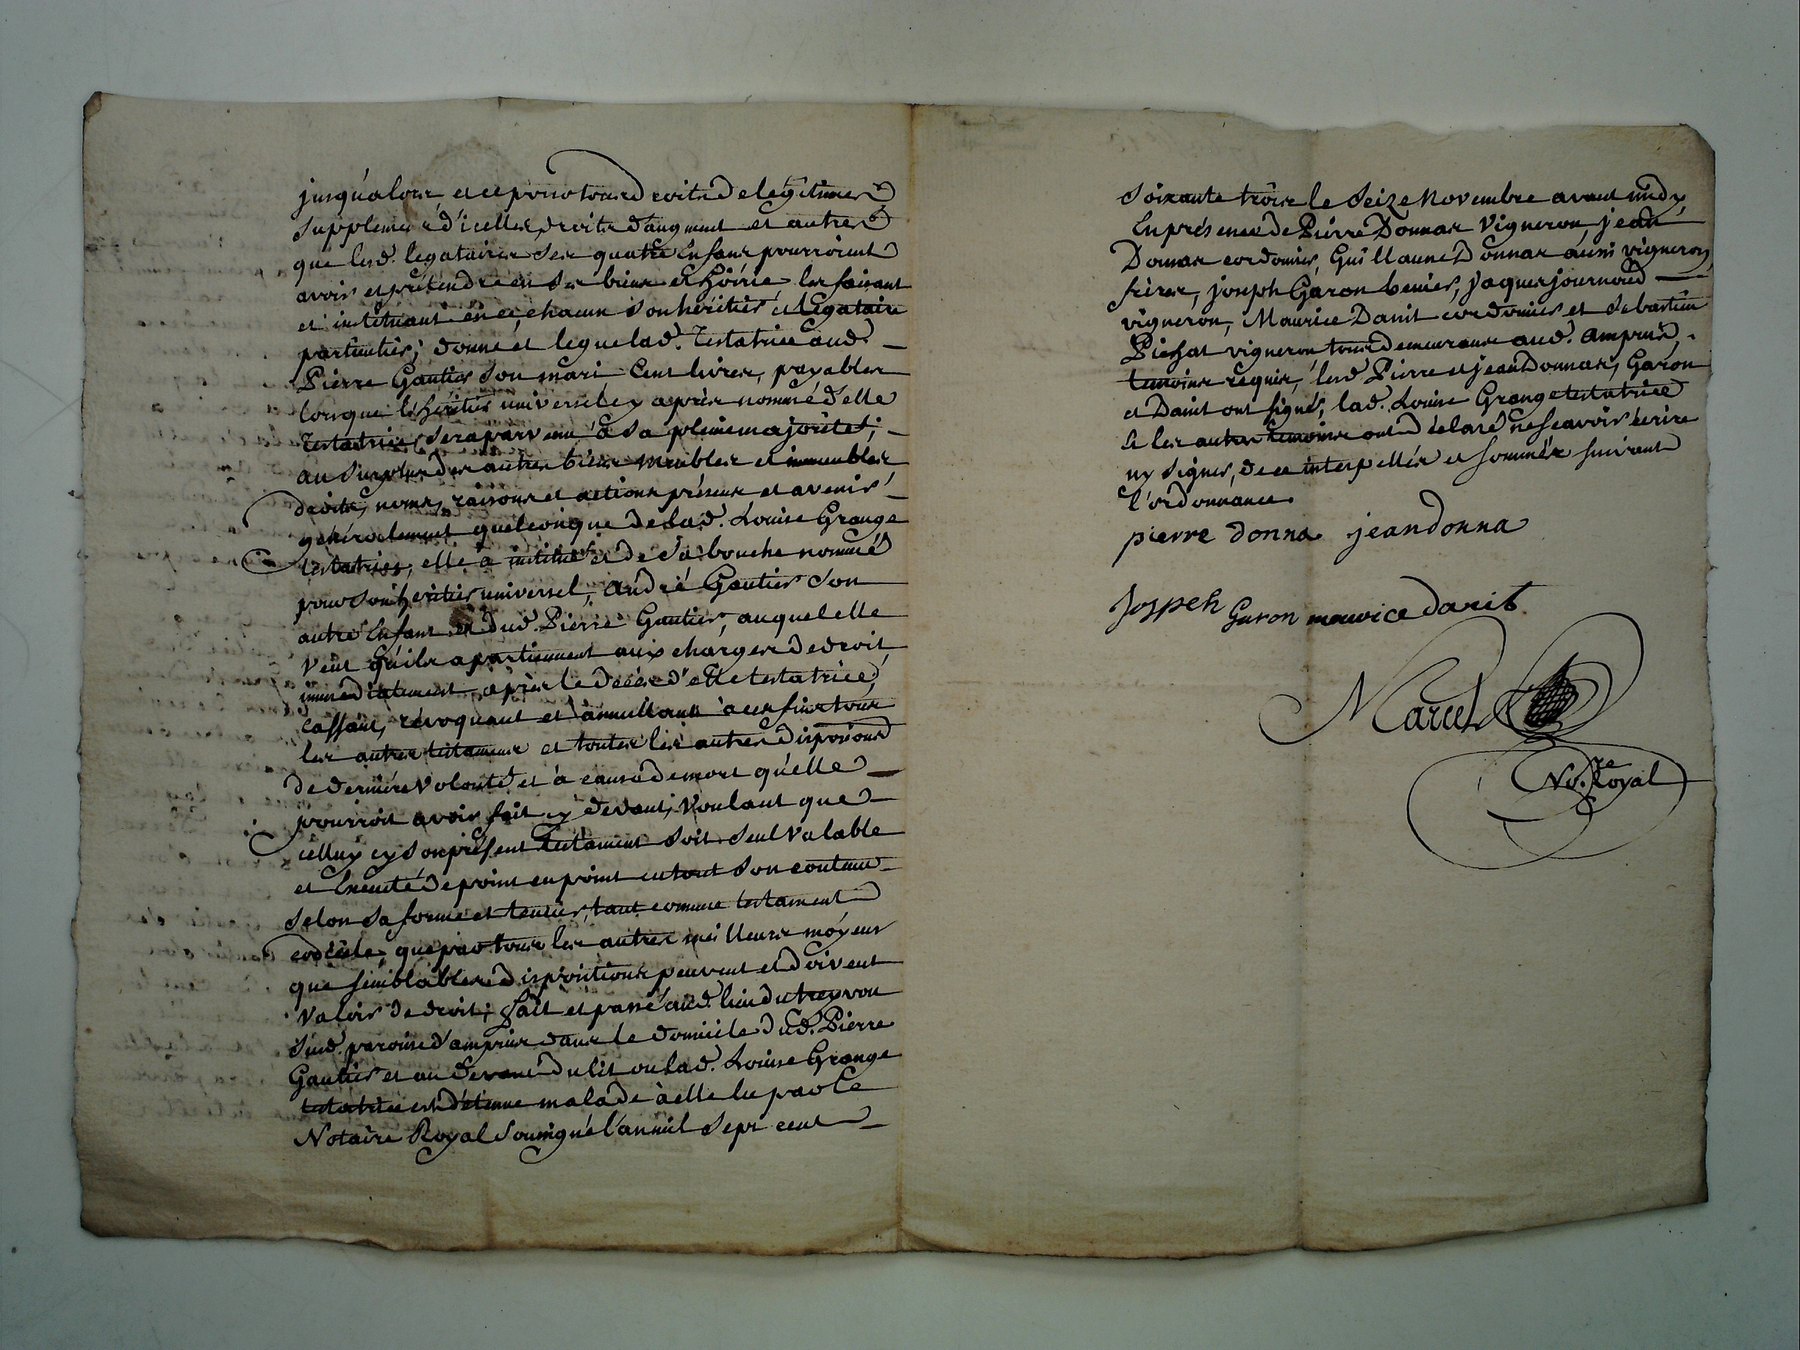 jusqu'alors, et ce pour tous droits de legitime
supplement d'icelle, droits d'augment et autres
que lesd. legataires ses quatre enfans pourroient
avoir et pretendre en ses biens et hoirie les faisant
et instituant en ce, chacun son heritier et legataire
particulier; donne et legue lad. Testatrice aud.
Pierre Gautier son mari Cent livres, payables
lorsque l'heritier universel cy après nommé d'elle
testatrice sera parvenu à sa pleine majorité;
au surplus des autres biens meubles et immeubles
droits, noms, raisons et actions présens et avenir
généralement quelconque de lad. Louise Grange
testatrice, elle a institué et de sa bouche nommé
pour son heritier universel, André Gautier son
autre Enfant et dud. Pierre Gautier, auquel elle
veut qu'ils apartiennent aux charges de droit,
immédiatement après le décès d'elle testatrice,
cassant, révoquant et annullant à ces fins tous
les autres testamens et toutes les autres dispositions
de derniére volonté et à cause de mort qu'elle
pourroit avoir fait cy devant, voulant que
celluy cy son présent Testament soit seul valable
et Executé de point en point en tout son contenu
selon sa forme et teneur, tant comme testament
codicile, que par tous les autres meilleurs moyens
que semblables dispositions peuvent et doivent
valoir de droit; fait et passé aud. lieu du treyvou
sud. paroisse d'ampuis dans le domicile dud. Pierre
Gautier et au devant du lit ou lad. Louise Grange
testatrice est détenue malade à elle lu par le
Notaire Royal soussigné l'an mil sept cent
soixante trois le seize Novembre avant midy,
En présence de Pierre Donnas Vigneron, jean
Donnas cordonier, Guillaume Donnas aussi vigneron,
frères, joseph Garon benier, jaques journoud
vigneron, Maurice Danit cordonier et Sebastien
Pichat vigneron tous demeurans aud. Ampuis,
temoins requis, lesd. Pierre et jean Donnas, Garon
et Danit ont signés, lad. Louise Grange testatrice
et les autres temoins ont déclaré ne scavoir écrire
ny signer, de ce interpellés et sommés suivant
l'ordonnance.
pierre donna jean donna
Jospeh Garon mauvice danit
Marcel
No.re Royal